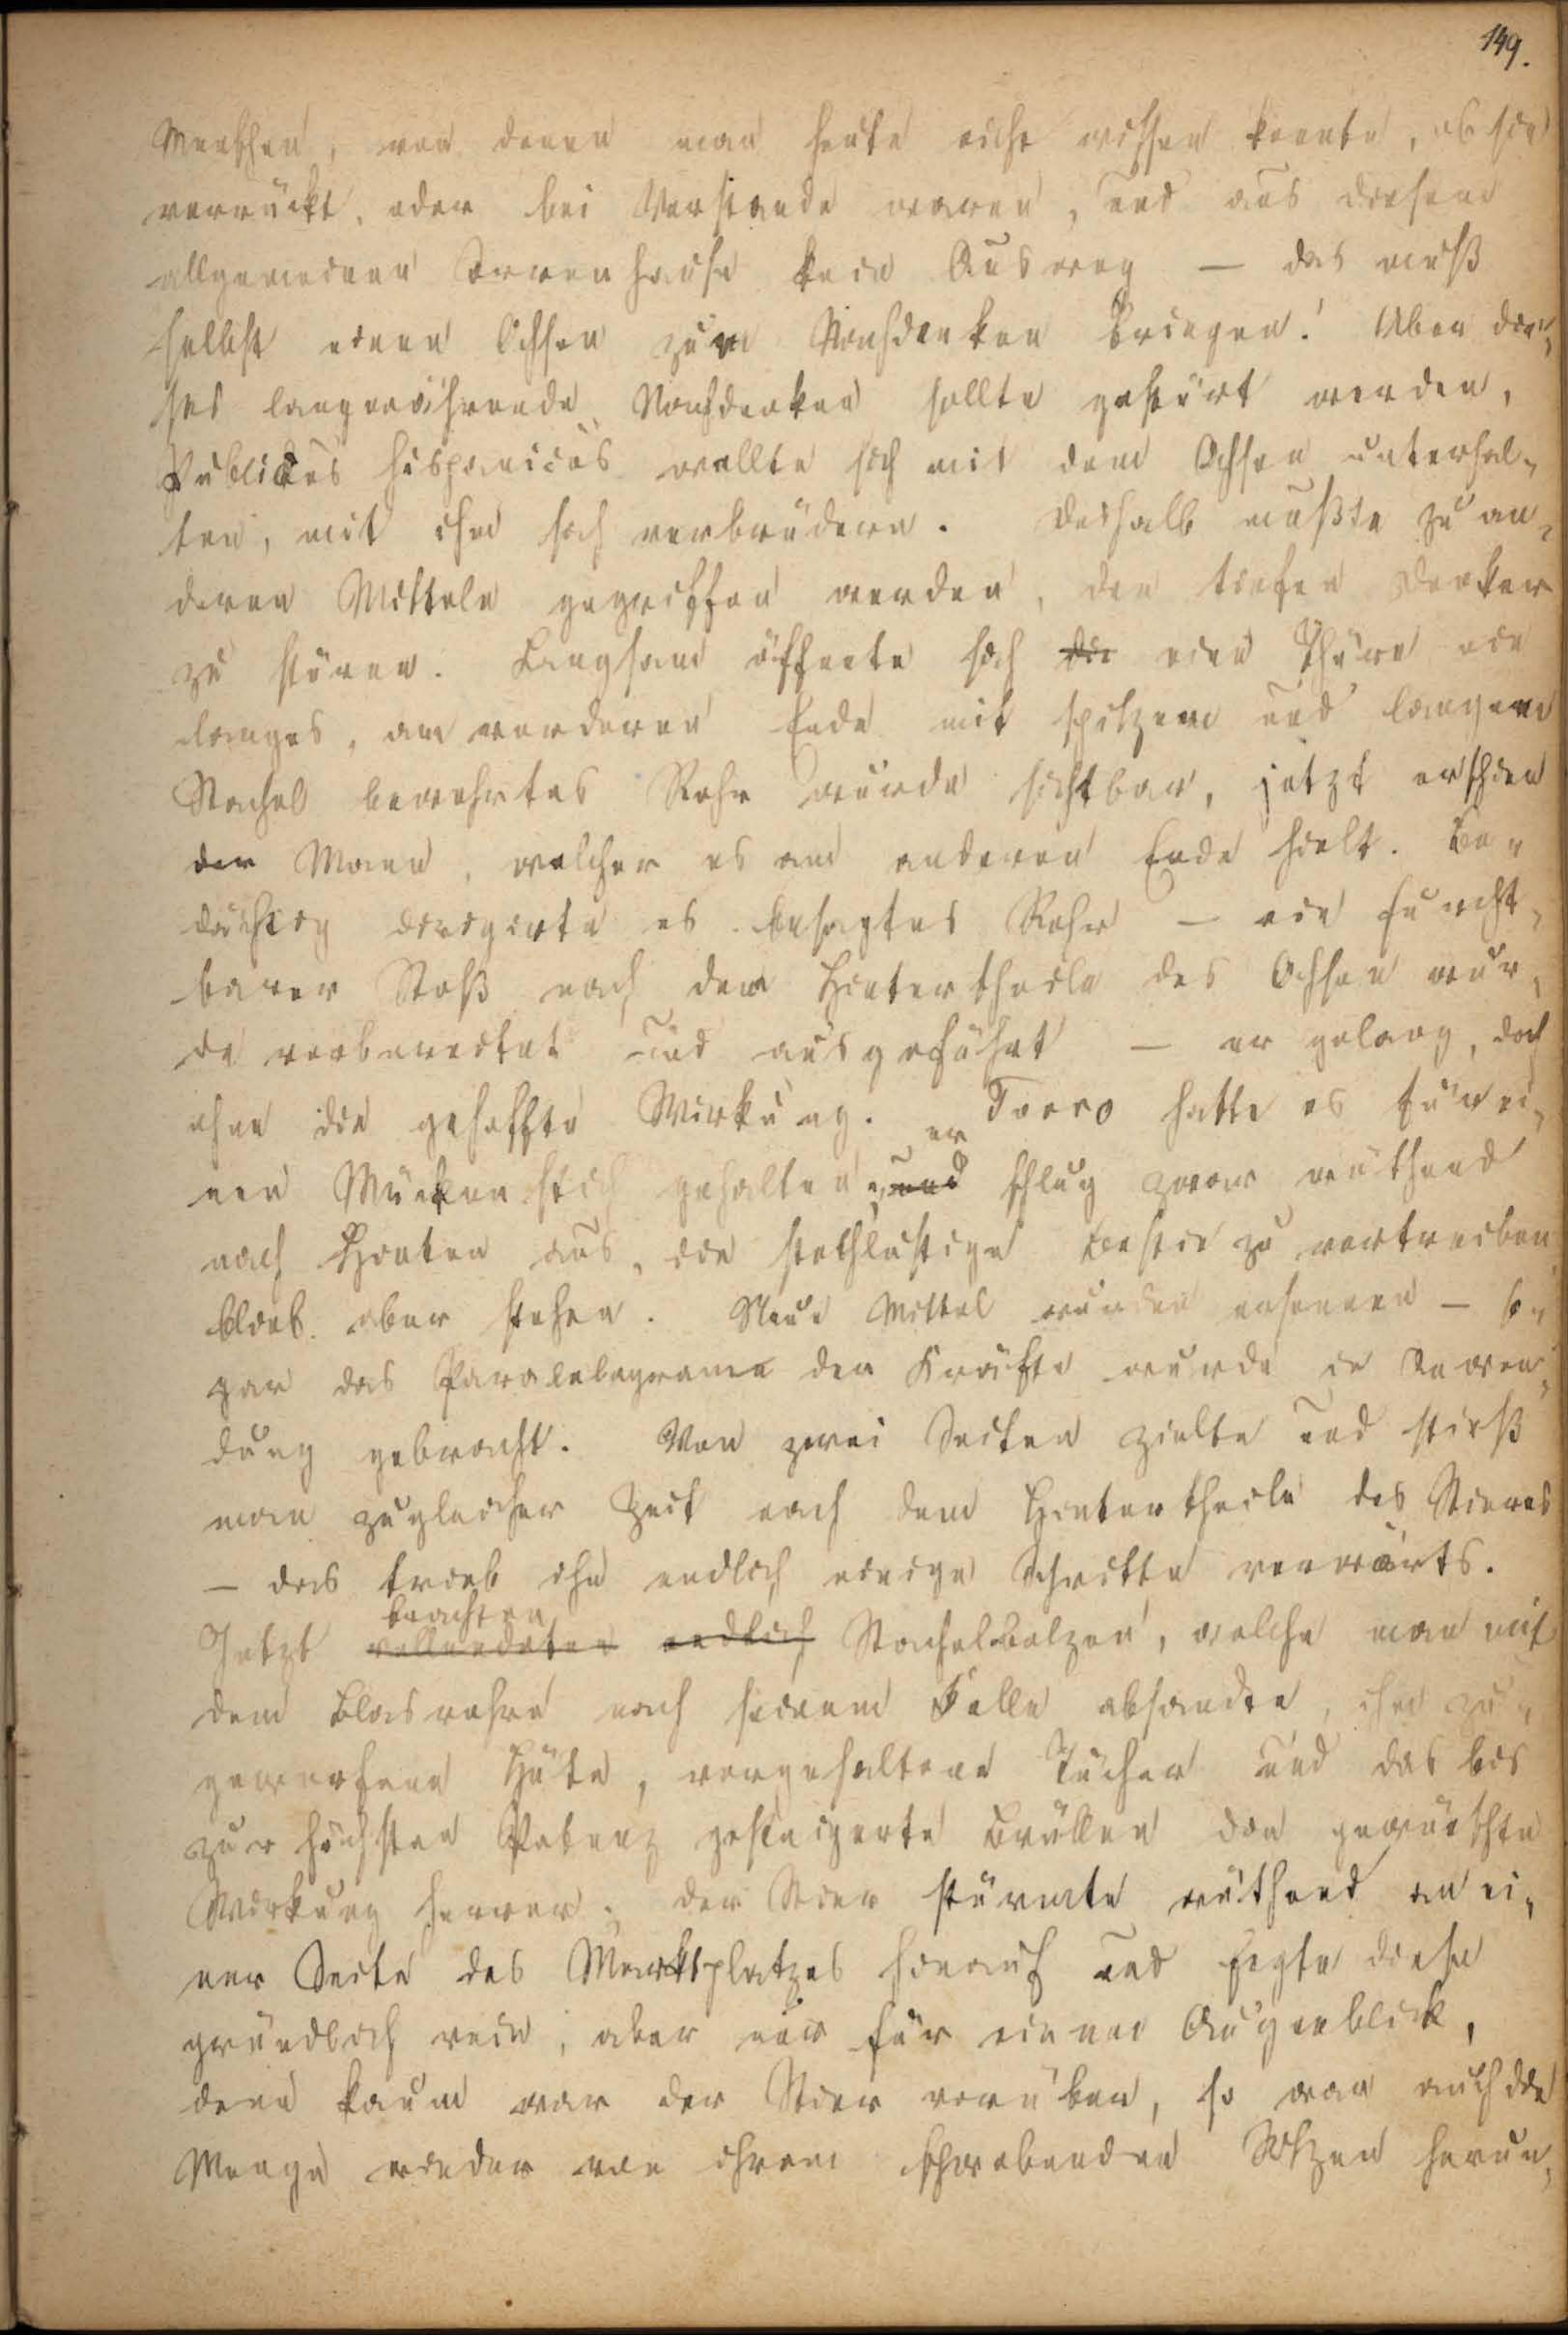 149.
Menschen, von denen man heute nicht wissen konnte, ob sie
verrückt, oder bei Verstande waren, und aus diesem
allgemeinen Irrenhause kein Ausweg — das muß
selbst einen Ochsen zum Nachdenken bringen! Aber die„
ses langwährende Nachdenken sollte gestört werden,
Publicus hispanicus wollte sich mit dem Ochsen unterhal„
ten, mit ihm sich verbrüdern. Deshalb mußte zu an„
deren Mitteln gegriffen werden, den tiefen Denker
zu stören. Langsam öffnete sich die eine Thüre ein
langes, am vorderen Ende mit spitzem und langem
Stachel bewehrtes Rohr wurde sichtbar, jetzt erschien
der Mann, welcher es am anderen Ende hielt. Be„
dächtig dirigirte es besagtes Rohr — ein furcht„
barer Stoß nach dem Hintertheile des Ochsen wur„
de vorbereitet und ausgeführt — er gelang, doch
ohne die gehoffte Wirkung. Torro hatte es für ei„
nen Mückenstich gehalten, und er schlug zwar wüthend
nach Hinten aus, die stechlustige Bestie zu vertreiben
blieb aber stehen. Neue Mittel wurden ersonnen — so„
gar das Paralelogramm der Kräfte wurde in Anwen„
dung gebracht. Von zwei Seiten zielte und stieß
man zugleicher Zeit nach dem Hintertheile des Stieres
— das trieb ihn endlich einige Schritte vorwärts.
Jetzt vollendeten brachten endlich Stachelbolzen, welche man mit
dem Blasrohre nach seinem Felle absandte, ihm zu„
geworfene Hüte, vorgehaltene Tücher und das bis
zur höchsten Potenz gesteigerte Brüllen die gewünschte
Wirkung hervor. Der Stier stürmte wüthend an ei„
ner Seite des Marktplatzes hinauf und fegte diese
gründlich rein, aber nur für einen Augenblick,
denn kaum war der Stier vorüber, so war auch die
Menge wieder von ihrem schwebenden Sitzen herun„